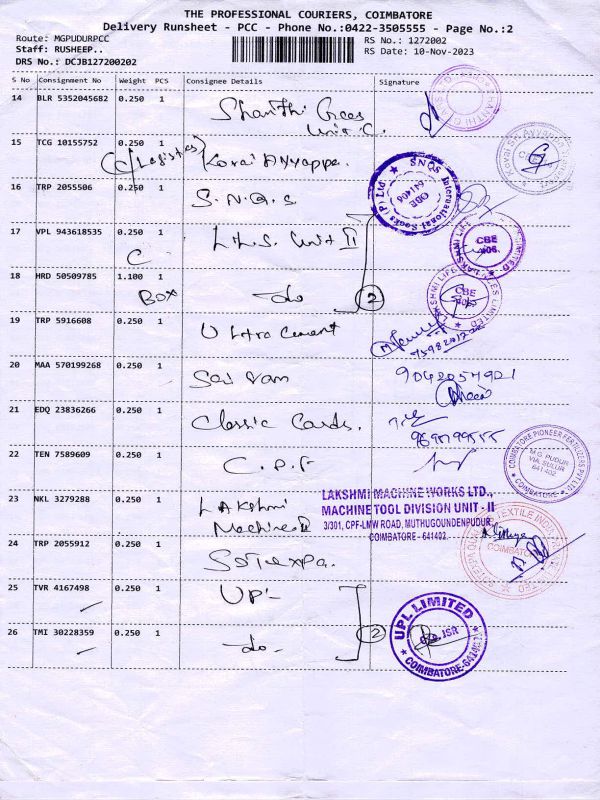 THE PROFESSIONAL COURIERS, COIMBATORE
Delivery Runsheet - PCC - Phone No.:0422-3505555 - Page No.:2
Route: MGPUDURPCC
RS No.: 1272002
Staff: RUSHEEP..
RS Date: 10-Nov-2023
DRS No.: DCJB127200202
S No Consignment No Weight PCS Consignee Details Signature
14 BLR 5352045682 0.250 1 Shanthi Gees
Unit C.
15 TCG 10155752 0.250 1
CC/Logistics Korai Ayyappa.
16 TRP 2055506 0.250 1 S.N.Q.S
SNQS International Socks (P) Ltd
CBE
641406
17 VPL 943618535 0.250 1 L.L.S. Unit II
C
CBE
18 HRD 50509785 1.100 1 -do-
BOX
2
LAKSHMI LIFE
CBE
19 TRP 5916608 0.250 1 Ultra Cement
20 MAA 570199268 0.250 1 Sai Ram
9042054921
21 EDQ 23836266 0.250 1 Classic Cards.
22 TEN 7589609 0.250 1 C.P.F
COIMBATORE PIONEER FERTILIZERS PVT LTD
M.G. PUDUR
VIA, SULUR
641-402
COIMBATORE
23 NKL 3279288 0.250 1 LAkshmi
Machines II
LAKSHMI MACHINE WORKS LTD.,
MACHINE TOOL DIVISION UNIT - II
3/301, CPF-LMW ROAD, MUTHUGOUNDENPUDUR,
COIMBATORE - 641402.
24 TRP 2055912 0.250 1
COIMBATORE
25 TVR 4167498 0.250 1 UPL
26 TMI 30228359 0.250 1 -do-
2
UPL LIMITED
COIMBATORE-641402